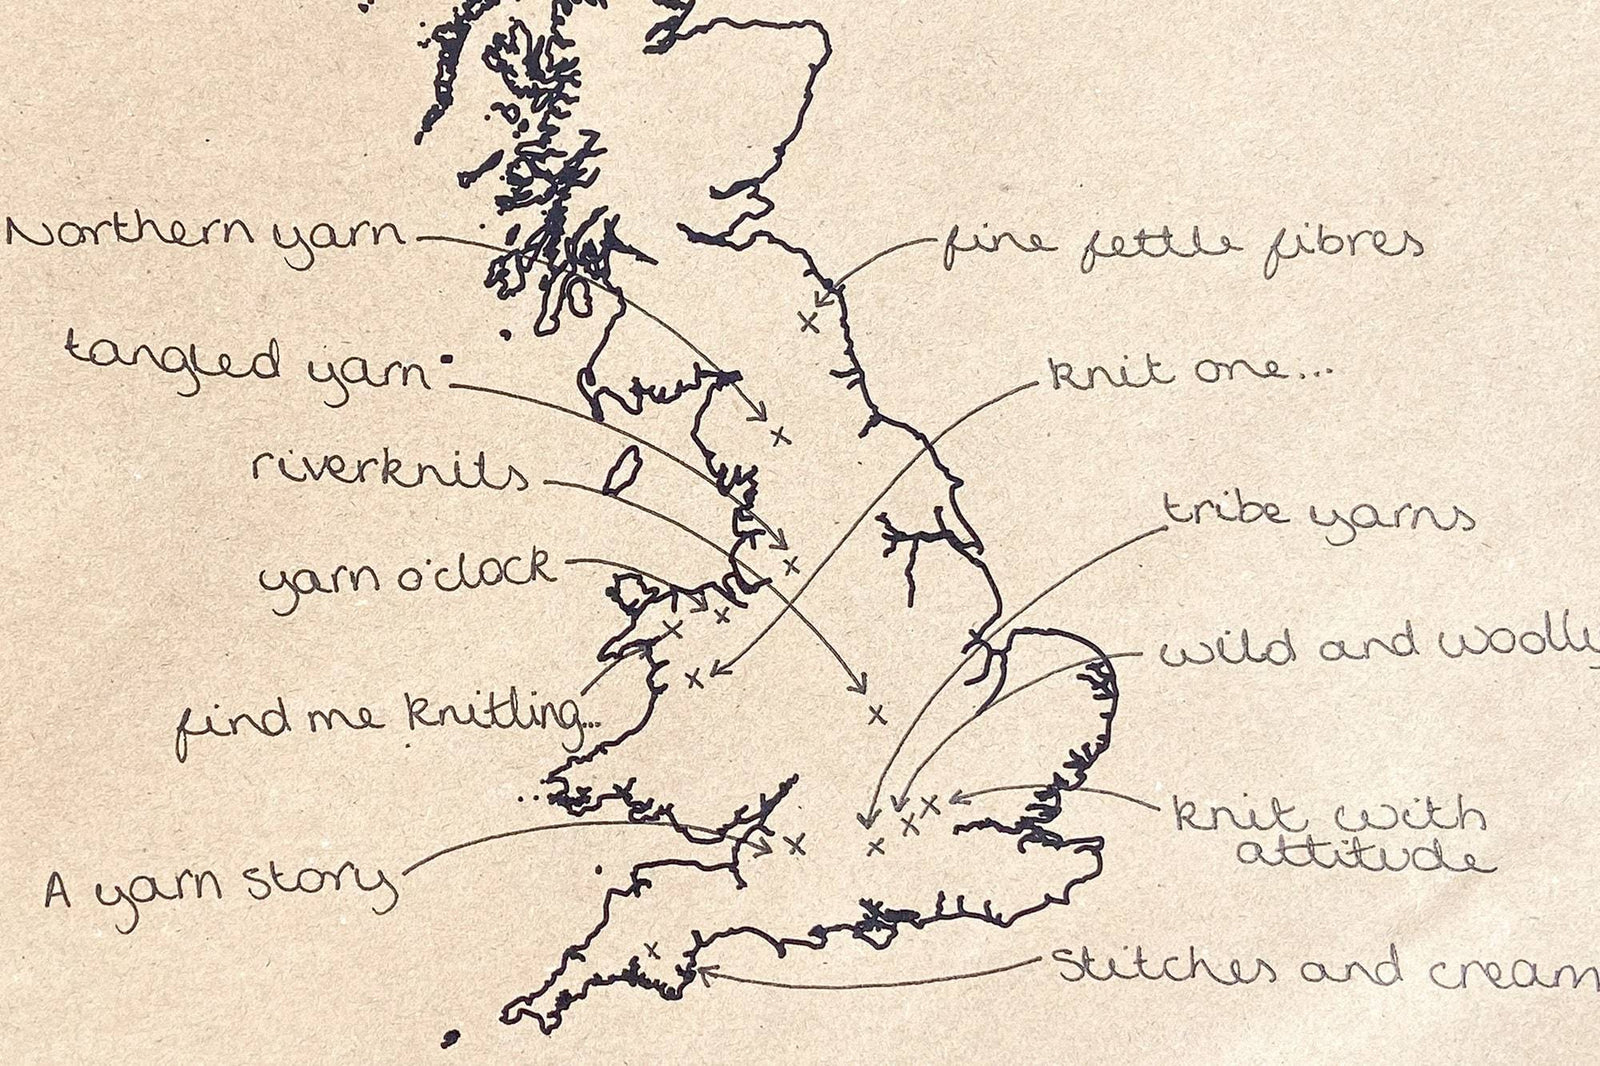 Northern yarn
fine fettle fibres
tangled yarn
knit one...
riverknits
tribe yarns
yarn o'clock
wild and woolly
find me knitting...
knit with
attitude
A yarn story
Stitches and cream